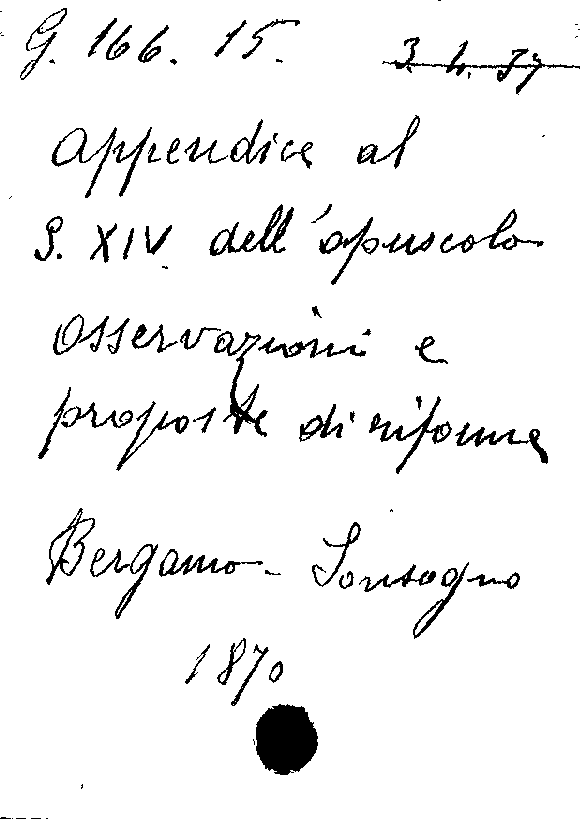 G. 166. 15. 3. 4. 37
Appendice al
§. XIV dell'opuscolo
Osservazioni e
proposte di riforme
Bergamo - Sonsogno
1870